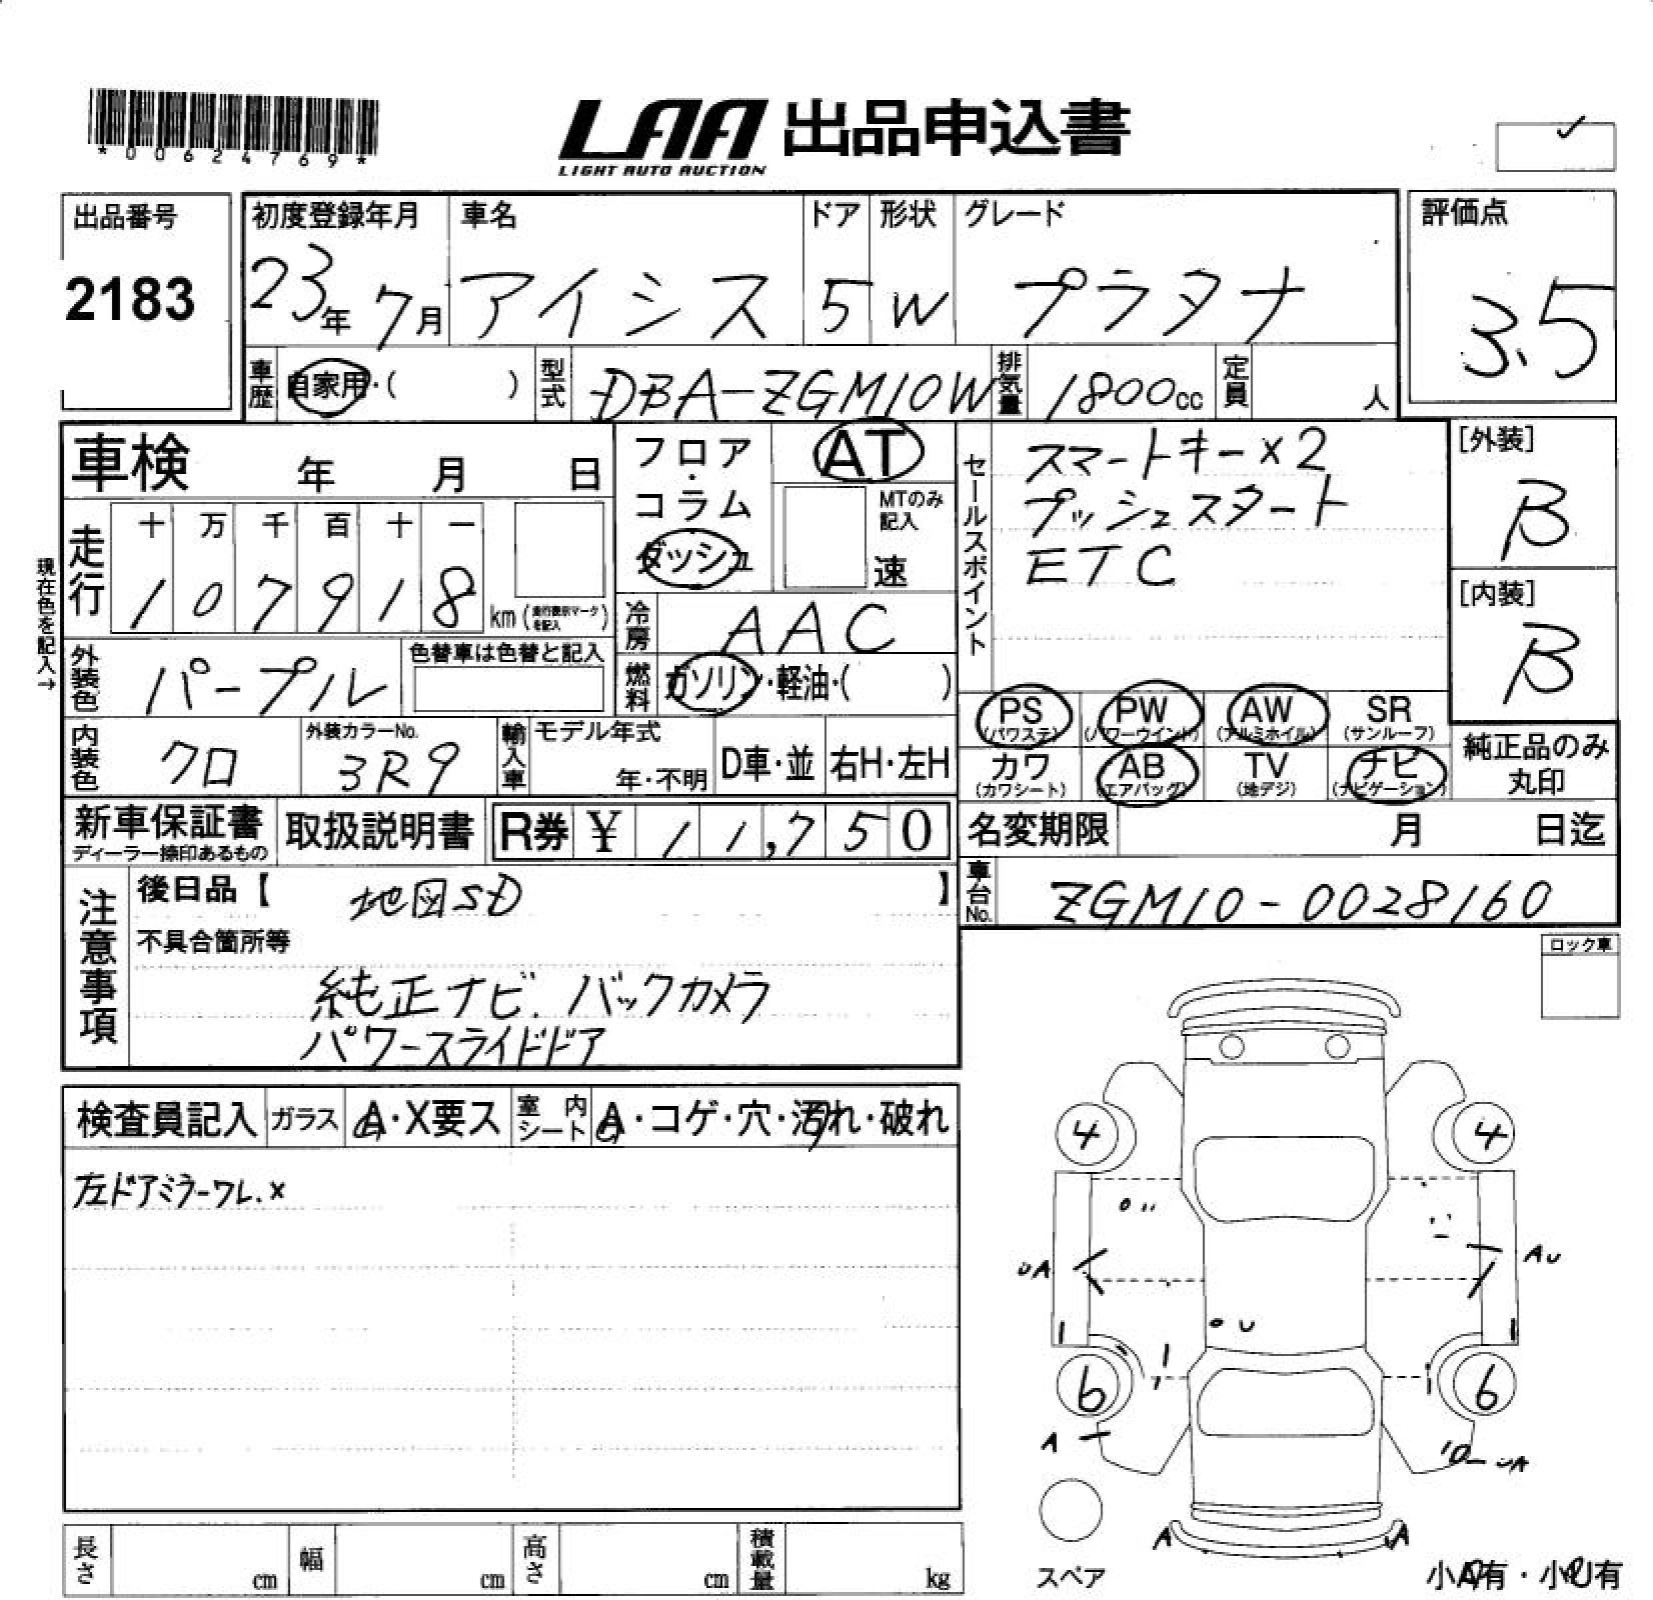 *00624769*
LAA 出品申込書
LIGHT AUTO AUCTION
出品番号
2183
初度登録年月 車名 ドア 形状 グレード
23年 7月 アイシス 5 W プラタナ
評価点
3.5
車歴 自家用・( ) 型式 DBA-ZGM10W 排気量 1800cc 定員 人
車検 年 月 日
フロア・コラム
ダッシュ
AT
MTのみ記入
速
セールスポイント
スマートキー×2
プッシュスタート
ETC
[外装]
B
[内装]
B
現在色を記入→
走行 十 万 千 百 十 一
1 0 7 9 1 8 km (走行表示マークを記入)
冷房 AAC
外装色 パープル 色替車は色替と記入
燃料 ガソリン・軽油・( )
PS (パワステ) PW (パワーウインド) AW (アルミホイル) SR (サンルーフ)
カワ (カワシート) AB (エアバッグ) TV (地デジ) ナビ (ナビゲーション)
純正品のみ丸印
内装色 クロ 外装カラーNo. 3R9 輸入車 モデル年式 年・不明 D車・並 右H・左H
新車保証書 取扱説明書 R券 ¥ 11,750
ディーラー捺印あるもの
名変期限 月 日迄
車台No. ZGM10-0028160
注意事項
後日品【 地図SD 】
不具合箇所等
純正ナビ. バックカメラ
パワースライドドア
ロック車
検査員記入 ガラス A・X要ス 室内シート A・コゲ・穴・汚れ・破れ
左ドアミラーワレ.×
4 4
UA AU
U
6 6
A
A A
スペア
小A有・小U有
長さ cm 幅 cm 高さ cm 積載量 kg